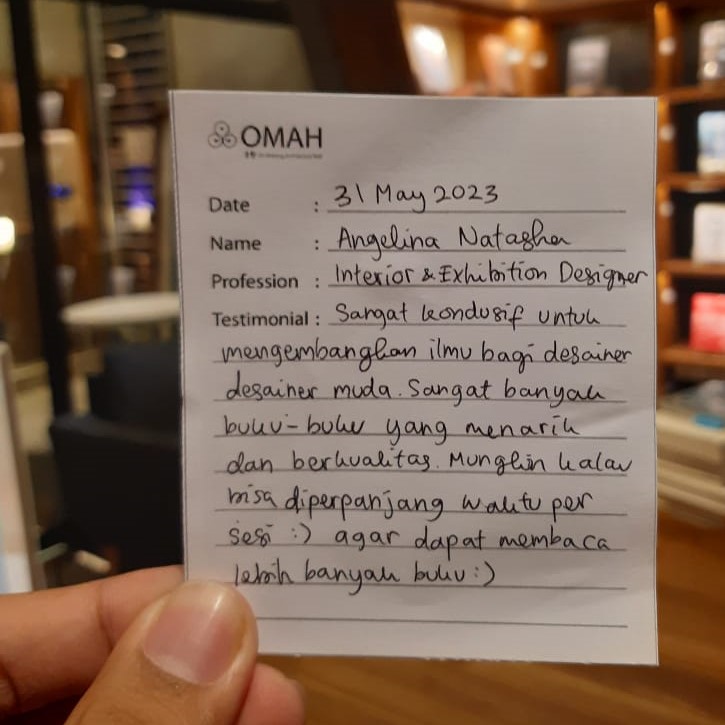 OMAH
Date : 31 May 2023
Name : Angelina Natasha
Profession : Interior & Exhibition Designer
Testimonial : Sangat kondusif untuk
mengembangkan ilmu bagi desainer
desainer muda. Sangat banyak
buku-buku yang menarik
dan berkualitas. Mungkin kalau
bisa diperpanjang waktu per
sesi :) agar dapat membaca
lebih banyak buku :)